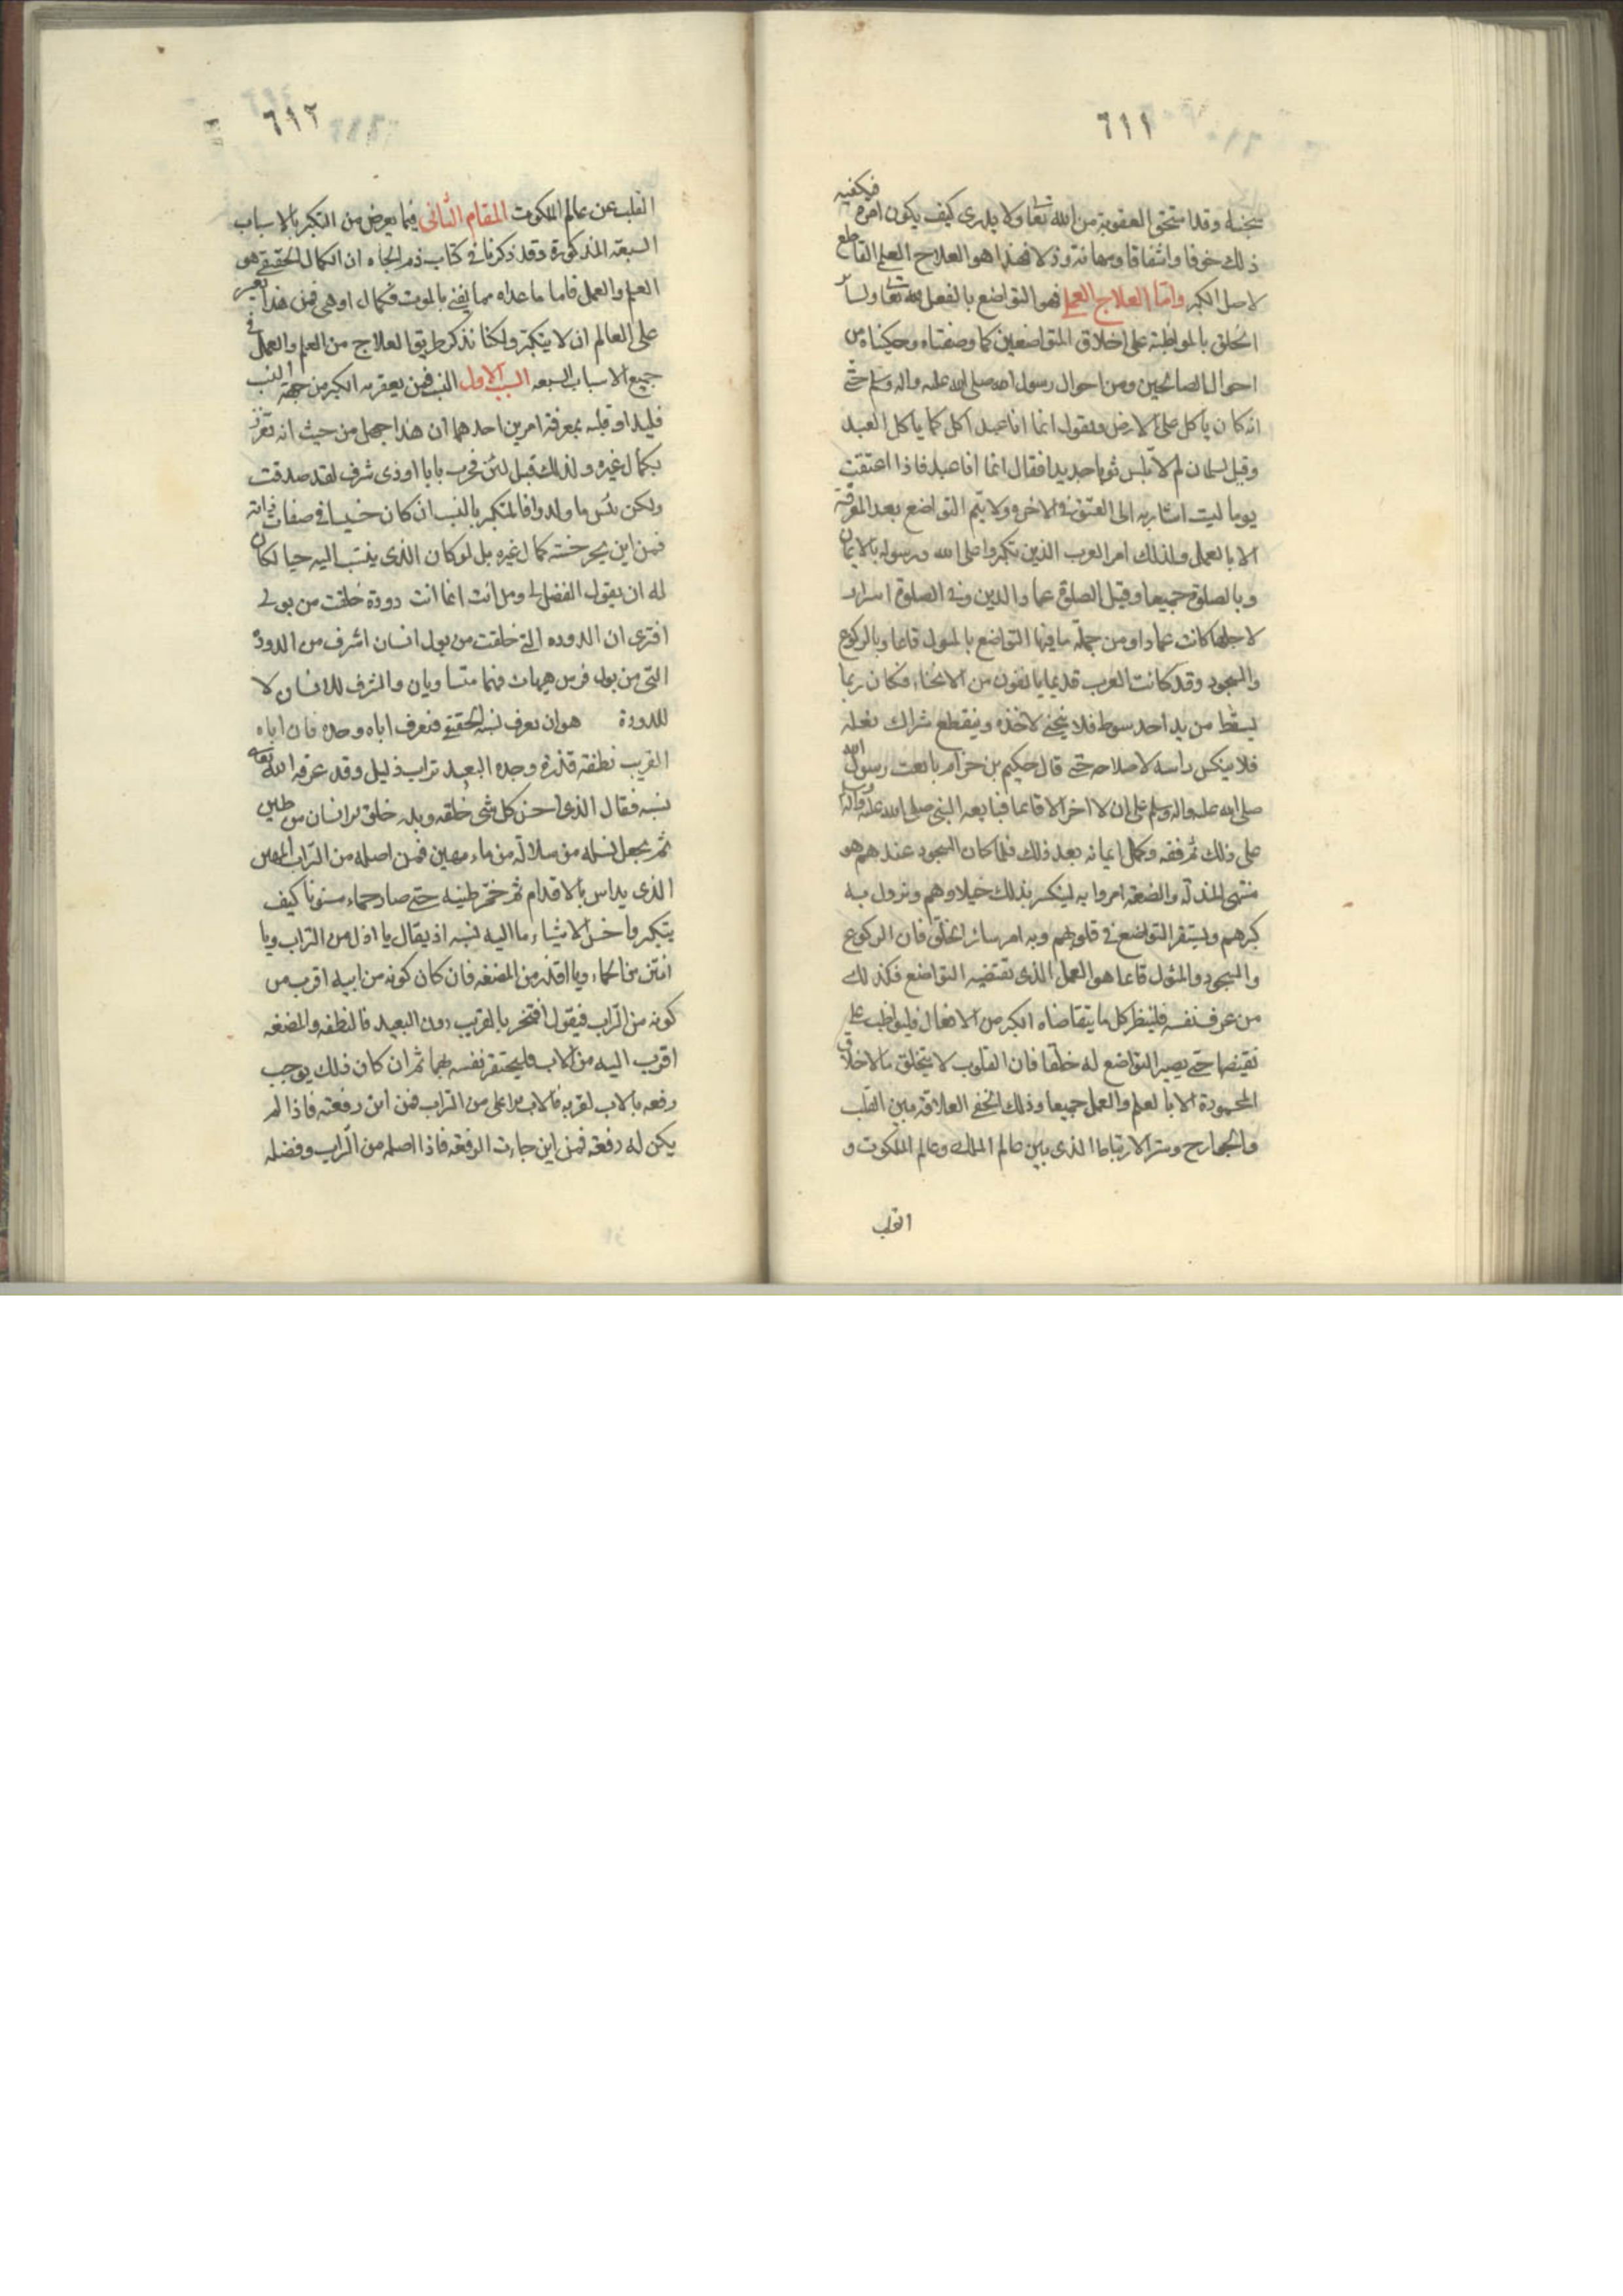 ٦١١
سجنه وقد استحق العقوبة من الله تعا ولا يدرى كيف يكون امره فيكفيه
ذلك خوفا واشفاقا ومهانة وذلا فهذا هو العلاج العلمى القاطع
لاصل الكبر واما العلاج العملى فهو التواضع بالفعل لله تعا ولسائر
الخلق بالمواظبة على اخلاق المتواضعين كما وصفناه وحكيناه من
احوال الصالحين ومن احوال رسول الله صلى الله عليه واله وسلم حتى
انه كان ياكل على الارض ويقول انما انا عبد اكل كما ياكل العبد
وقيل لسلمان لم لا تلبس ثوبا جديدا فقال انما انا عبد فاذا اعتقت
يوما لبست اشار به الى العتق فى الاخرة ولا يتم التواضع بعد المعرفة
الا بالعمل ولذلك امر العرب الذين تكبروا على الله ورسوله بالايمان
وبالصلوة جميعا وقيل الصلوة عماد الدين وفى الصلوة اسرار
لاجلها كانت عمادا ومن جملة ما فيها التواضع بالمثول قائما وبالركوع
والسجود وقد كانت العرب قديما يانفون من الانحناء فكان ربما
يسقط من يد احد سوط فلا ينحنى لاخذه وينقطع شراك نعله
فلا ينكس راسه لاصلاحه حتى قال حكيم بن حزام بايعت رسول الله
صلى الله عليه واله وسلم على ان لا اخر الا قائما فبايعه النبى صلى الله عليه واله وسلم
على ذلك ثم فقه وكمل ايمانه بعد ذلك فلما كان السجود عندهم هو
منتهى المذلة والضعة امروا به لينكسر بذلك خيلاوهم وتزول به
كبرهم ويستقر التواضع فى قلوبهم وبه امر سائر الخلق فان الركوع
والسجود والمثول قائما هو العمل الذى تقتضيه التواضع فكذلك
من عرف نفسه فلينظر كل ما يتقاضاه الكبر من الافعال فليواظب على
نقيضها حتى يصير التواضع له خلقا فان القلوب لا يتخلق بالاخلاق
المحمودة الا بالعلم والعمل جميعا وذلك لخفى العلاقة بين القلب
والجوارح وسر الارتباط الذى بين عالم الملك وعالم الملكوت و
القلب
٦١٢
القلب عن عالم الملكوت المقام الثانى فيما يعرض من التكبر بالاسباب
السبعة المذكورة وقد ذكرنا فى كتاب ذم الجاه ان الكمال الحقيقى هو
العلم والعمل فاما ما عداه مما يفنى بالموت فكمال وهمى فمن هذا يعسر
على العالم ان لا يتكبر ولكنا نذكر طريق العلاج من العلم والعمل فى
جميع الاسباب السبعه السبب الاول النسب فمن يعتريه الكبر من جهة النسب
فليداو قلبه بمعرفة امرين احدهما ان هذا جهل من حيث انه تعزز
بكمال غيره ولذلك قيل لئن فخرت بابا اوذى شرف لقد صدقت
ولكن بئس ما ولدوا فالمتكبر بالنسب ان كان خسيسا فى صفات ذاته
فمن اين يجبر خسته كمال غيره بل لو كان الذى ينتسب اليه حيا لكان
له ان يقول الفضل لى ومن انت انما انت دودة خلقت من بولى
افترى ان الدوده التى خلقت من بول انسان اشرف من الدودة
التى من بول فرس هيهات فهما متساويان والشرف للانسان لا
للدودة هو ان يعرف نسبه الحقيقى فيعرف اباه وجده فان اباه
القريب نطفة قذرة وجده البعيد تراب ذليل وقد عرفه الله تعالى
نسبه فقال الذى احسن كل شى خلقه وبدء خلق الانسان من طين
ثم جعل نسله من سلالة من ماء مهين فمن اصله من التراب المهين
الذى يداس بالاقدام ثم خمر طينه حتى صار حماء مسنونا كيف
يتكبر واخس الاشياء ما اليه نسبه اذ يقال يا اذل من التراب ويا
انتن من الحماء ويا اقذر من المضغه فان كان كونه من ابيه اقرب من
كونه من التراب فيقول افتخر بالقريب دون البعيد فالنطفه والمضغه
اقرب اليه من الاب فليحتقر نفسه بهما ثم ان كان ذلك يوجب
رفعه بالاب لقربه فالاب الاعلى من التراب فمن اين رفعته فاذا لم
يكن له رفعة فمن اين جاءت الرفعه فاذا اصله من التراب وفضله